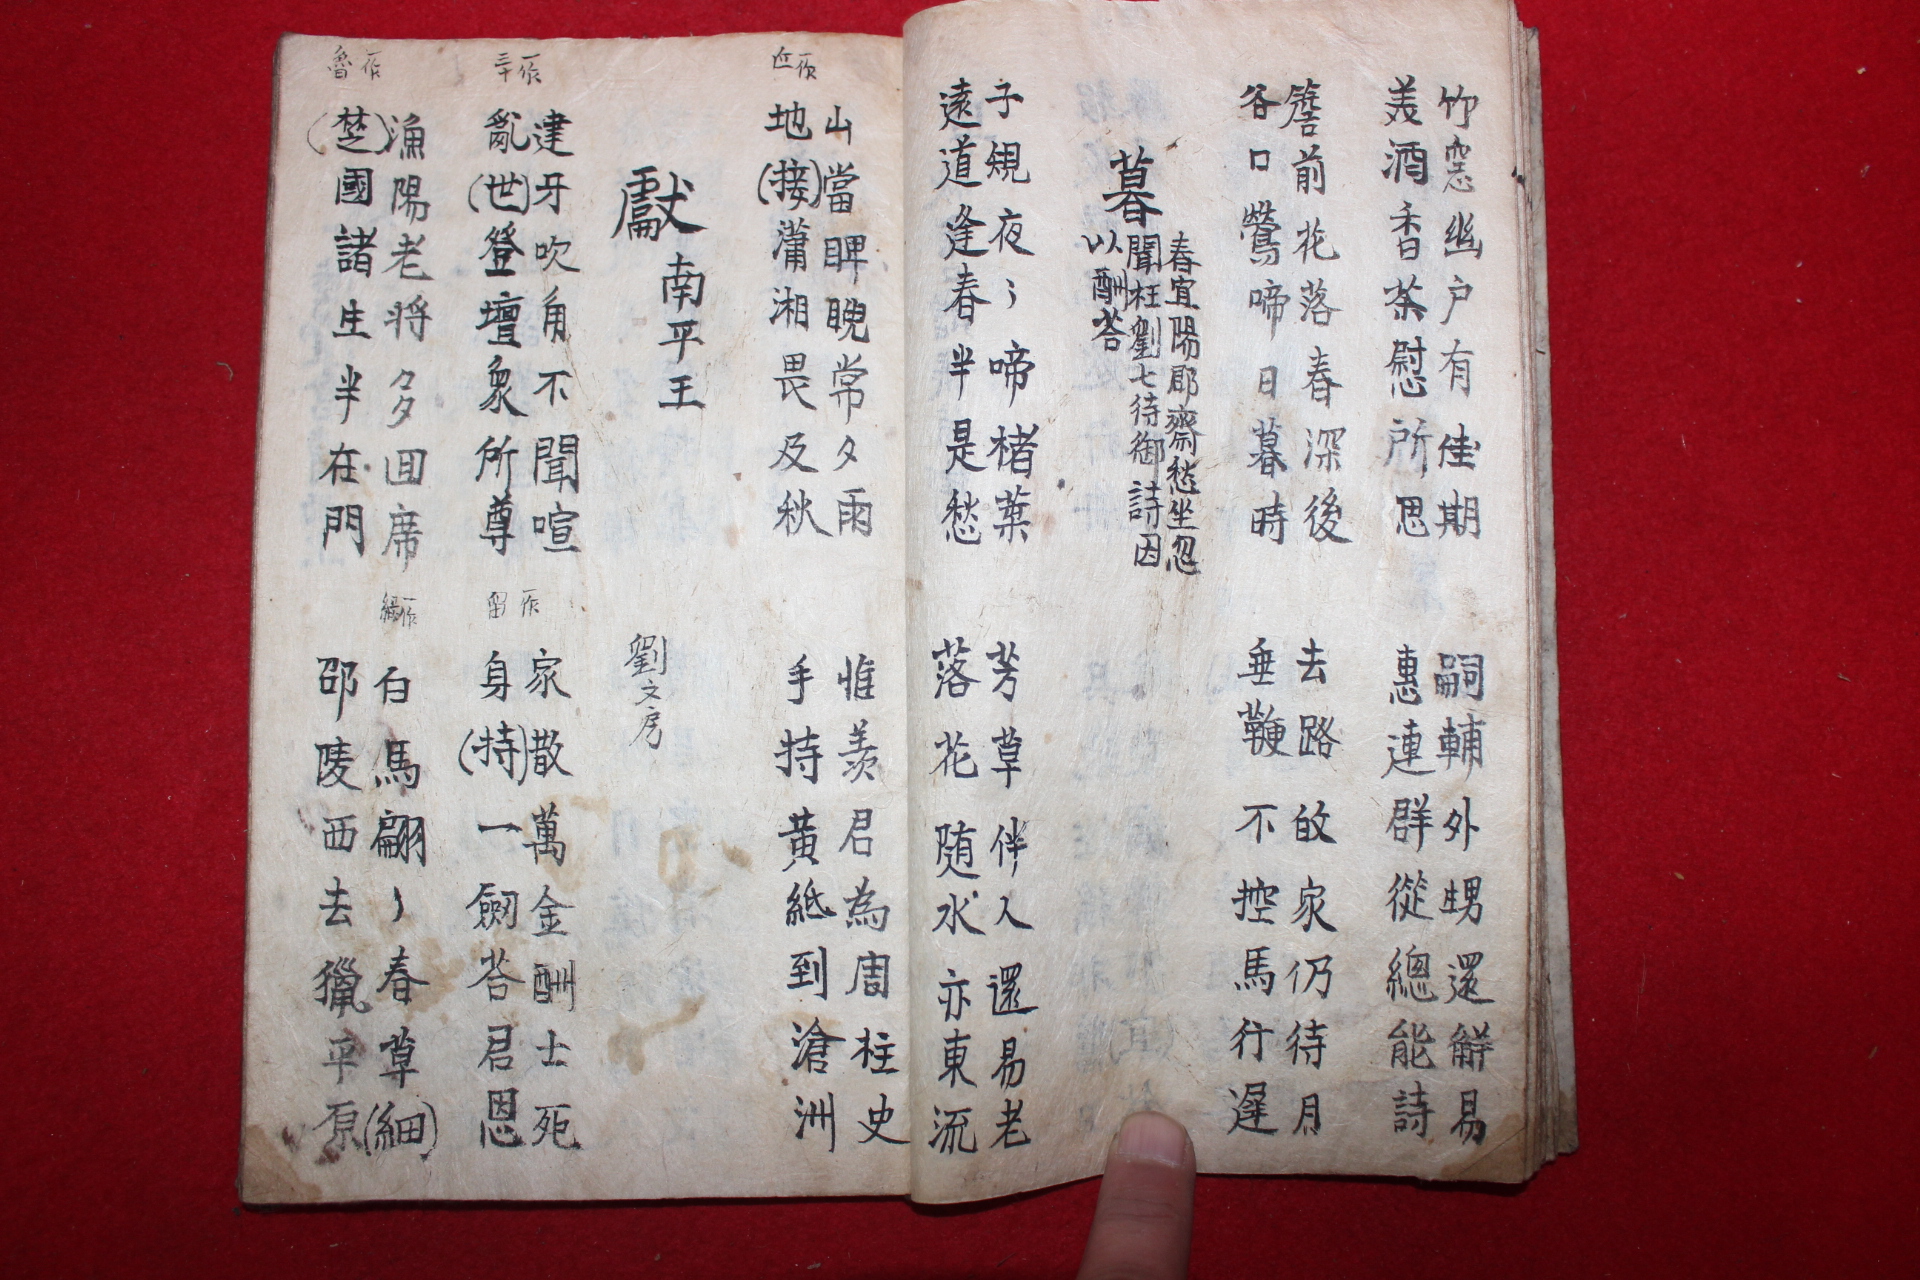 竹窓幽户有佳期
美酒香茶慰所思
嗣輔外甥還解易
惠連群從總能詩
簷前花落春深後
谷口鶯啼日暮時
去路家仍待月
垂鞭不控馬行遲
暮春宜陽郡齋愁坐忽
聞枉劉七待御詩因
以酬荅
子規夜〻啼楮葉
遠道逢春半是愁
芳草伴人還易老
落花随水亦東流
一作近
山當睥睨常夕雨
地(接)瀟湘畏及秋
惟羨君為周柱史
手持黄紙到滄洲
獻南平王
劉文房
一作三十
建牙吹角不聞喧
亂(世)登壇衆所尊
一作留
家散萬金酬士死
身(持)一劔荅君恩
一作魯
漁陽老將多回席
(楚)國諸生半在門
一作
白馬翩〻春草(細)
邵陵西去獵平原